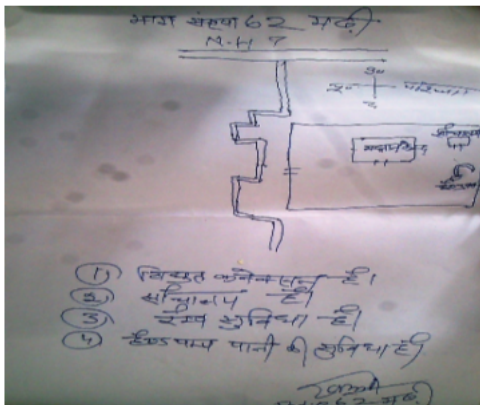 भाग संख्या 62 मढ़ी
N.H 7
मतदान केन्द्र
शौचालय
① विद्युत कनेक्सन है।
② शौचालय है।
③ रैम्प सुविधा है।
④ हैण्ड पम्प पानी की सुविधा है।
62-मढ़ी